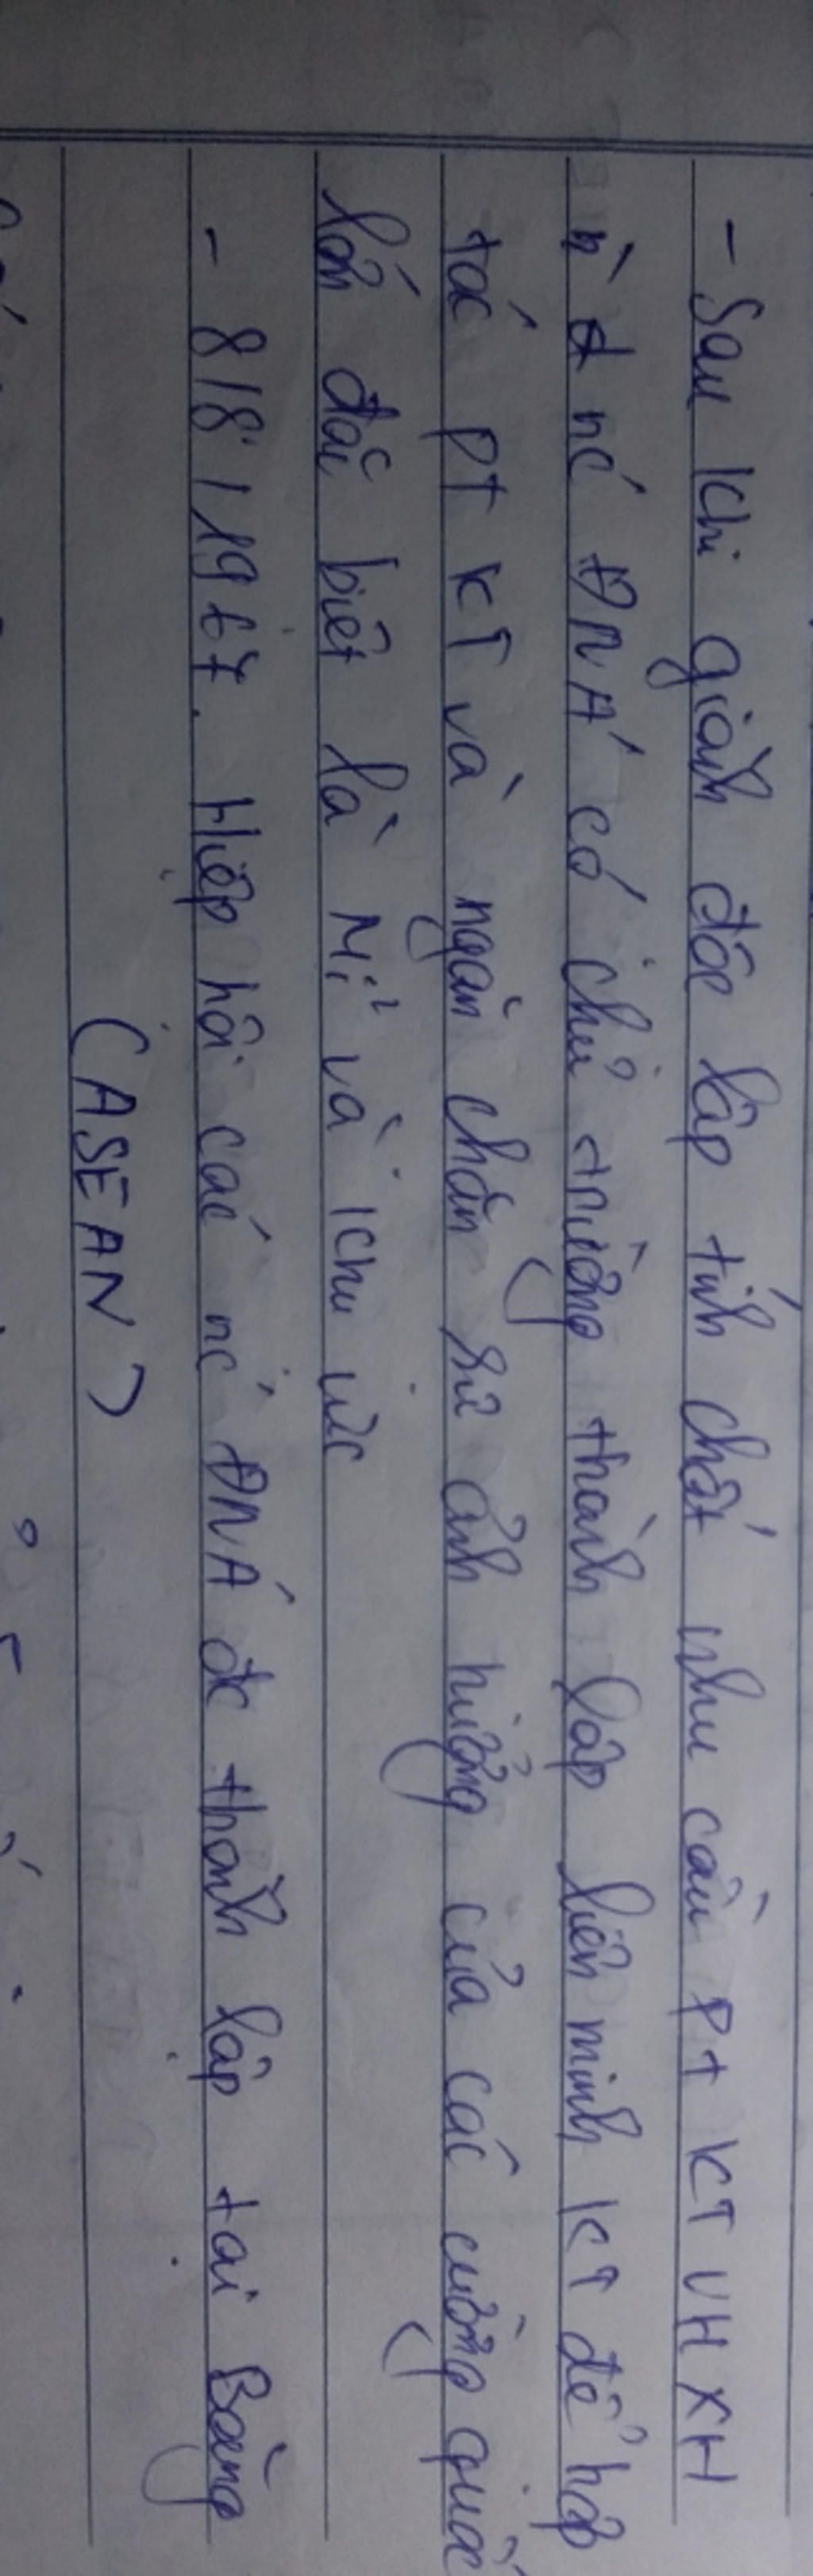 - Sau khi giành độc lập tính chất nhu cầu PT KT VH XH
nc ĐNÁ có chủ trường thành lập liên minh KT để hợp
tác PT KT và ngăn chặn sự ảnh hưởng của các cường quốc
lớn đặc biệt là Mỉ và khu vực
- 8/8/1967. Hiệp hội các nc ĐNÁ đc thành lập tại Băng
(ASEAN)